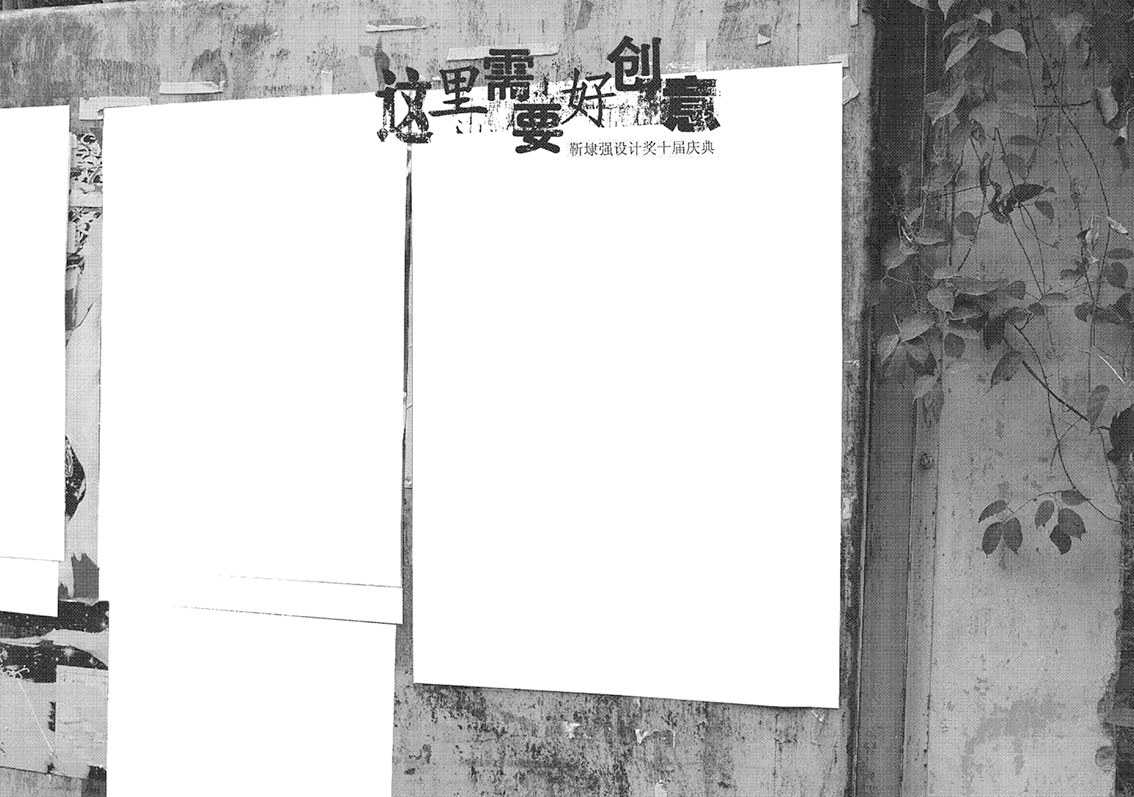 这里需要好创意
靳埭强设计奖十届庆典